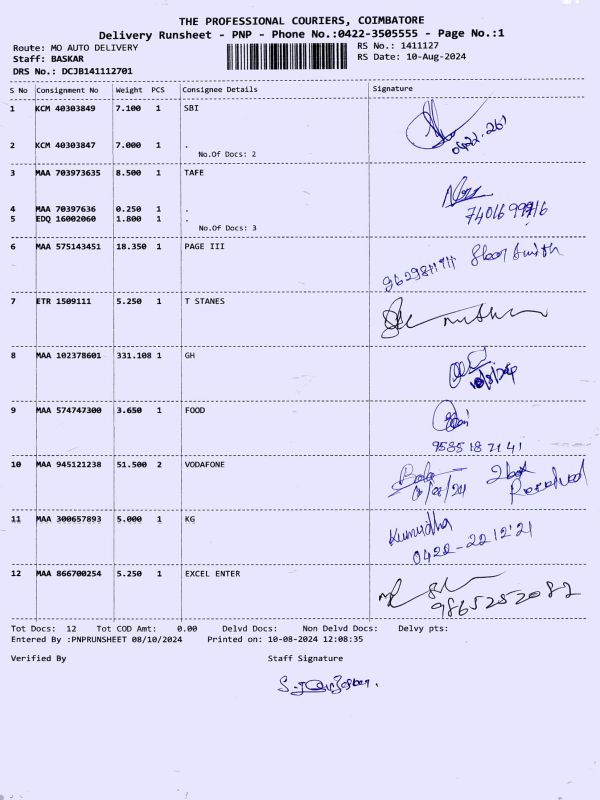 THE PROFESSIONAL COURIERS, COIMBATORE
Delivery Runsheet - PNP - Phone No.:0422-3505555 - Page No.:1
Route: MO AUTO DELIVERY RS No.: 1411127
Staff: BASKAR RS Date: 10-Aug-2024
DRS No.: DCJB141112701
S No Consignment No Weight PCS Consignee Details Signature
1 KCM 40303849 7.100 1 SBI
2 KCM 40303847 7.000 1 .
No.Of Docs: 2
3 MAA 703973635 8.500 1 TAFE
4 MAA 70397636 0.250 1 .
5 EDQ 16002060 1.800 1 .
No.Of Docs: 3
6 MAA 575143451 18.350 1 PAGE III
7 ETR 1509111 5.250 1 T STANES
8 MAA 102378601 331.108 1 GH
10/8/24
9 MAA 574747300 3.650 1 FOOD
9585187141
10 MAA 945121238 51.500 2 VODAFONE 2 box
Received
11 MAA 300657893 5.000 1 KG Kumudha
0422-2212'21
12 MAA 866700254 5.250 1 EXCEL ENTER
9865252082
Tot Docs: 12 Tot COD Amt: 0.00 Delvd Docs: Non Delvd Docs: Delvy pts:
Entered By :PNPRUNSHEET 08/10/2024 Printed on: 10-08-2024 12:08:35
Verified By Staff Signature